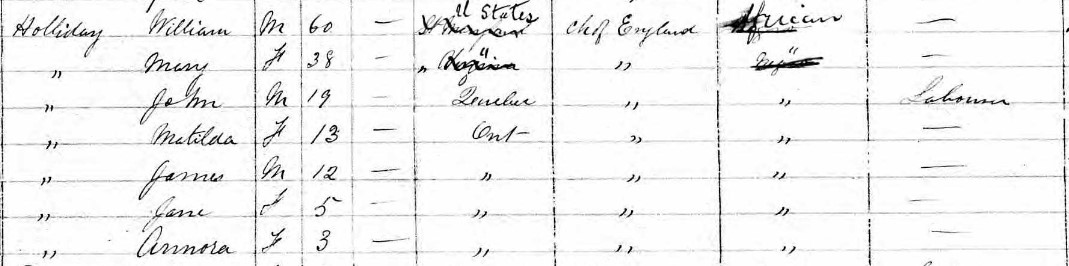 U States
Holliday William M 60 — Ch of England African —
" Mary F 38 — " " " —
" John M 19 — Quebec " " Labourer
" Matilda F 13 — Ont " " —
" James M 12 — " " " —
" Jane F 5 — " " " —
" Annora F 3 — " " " —